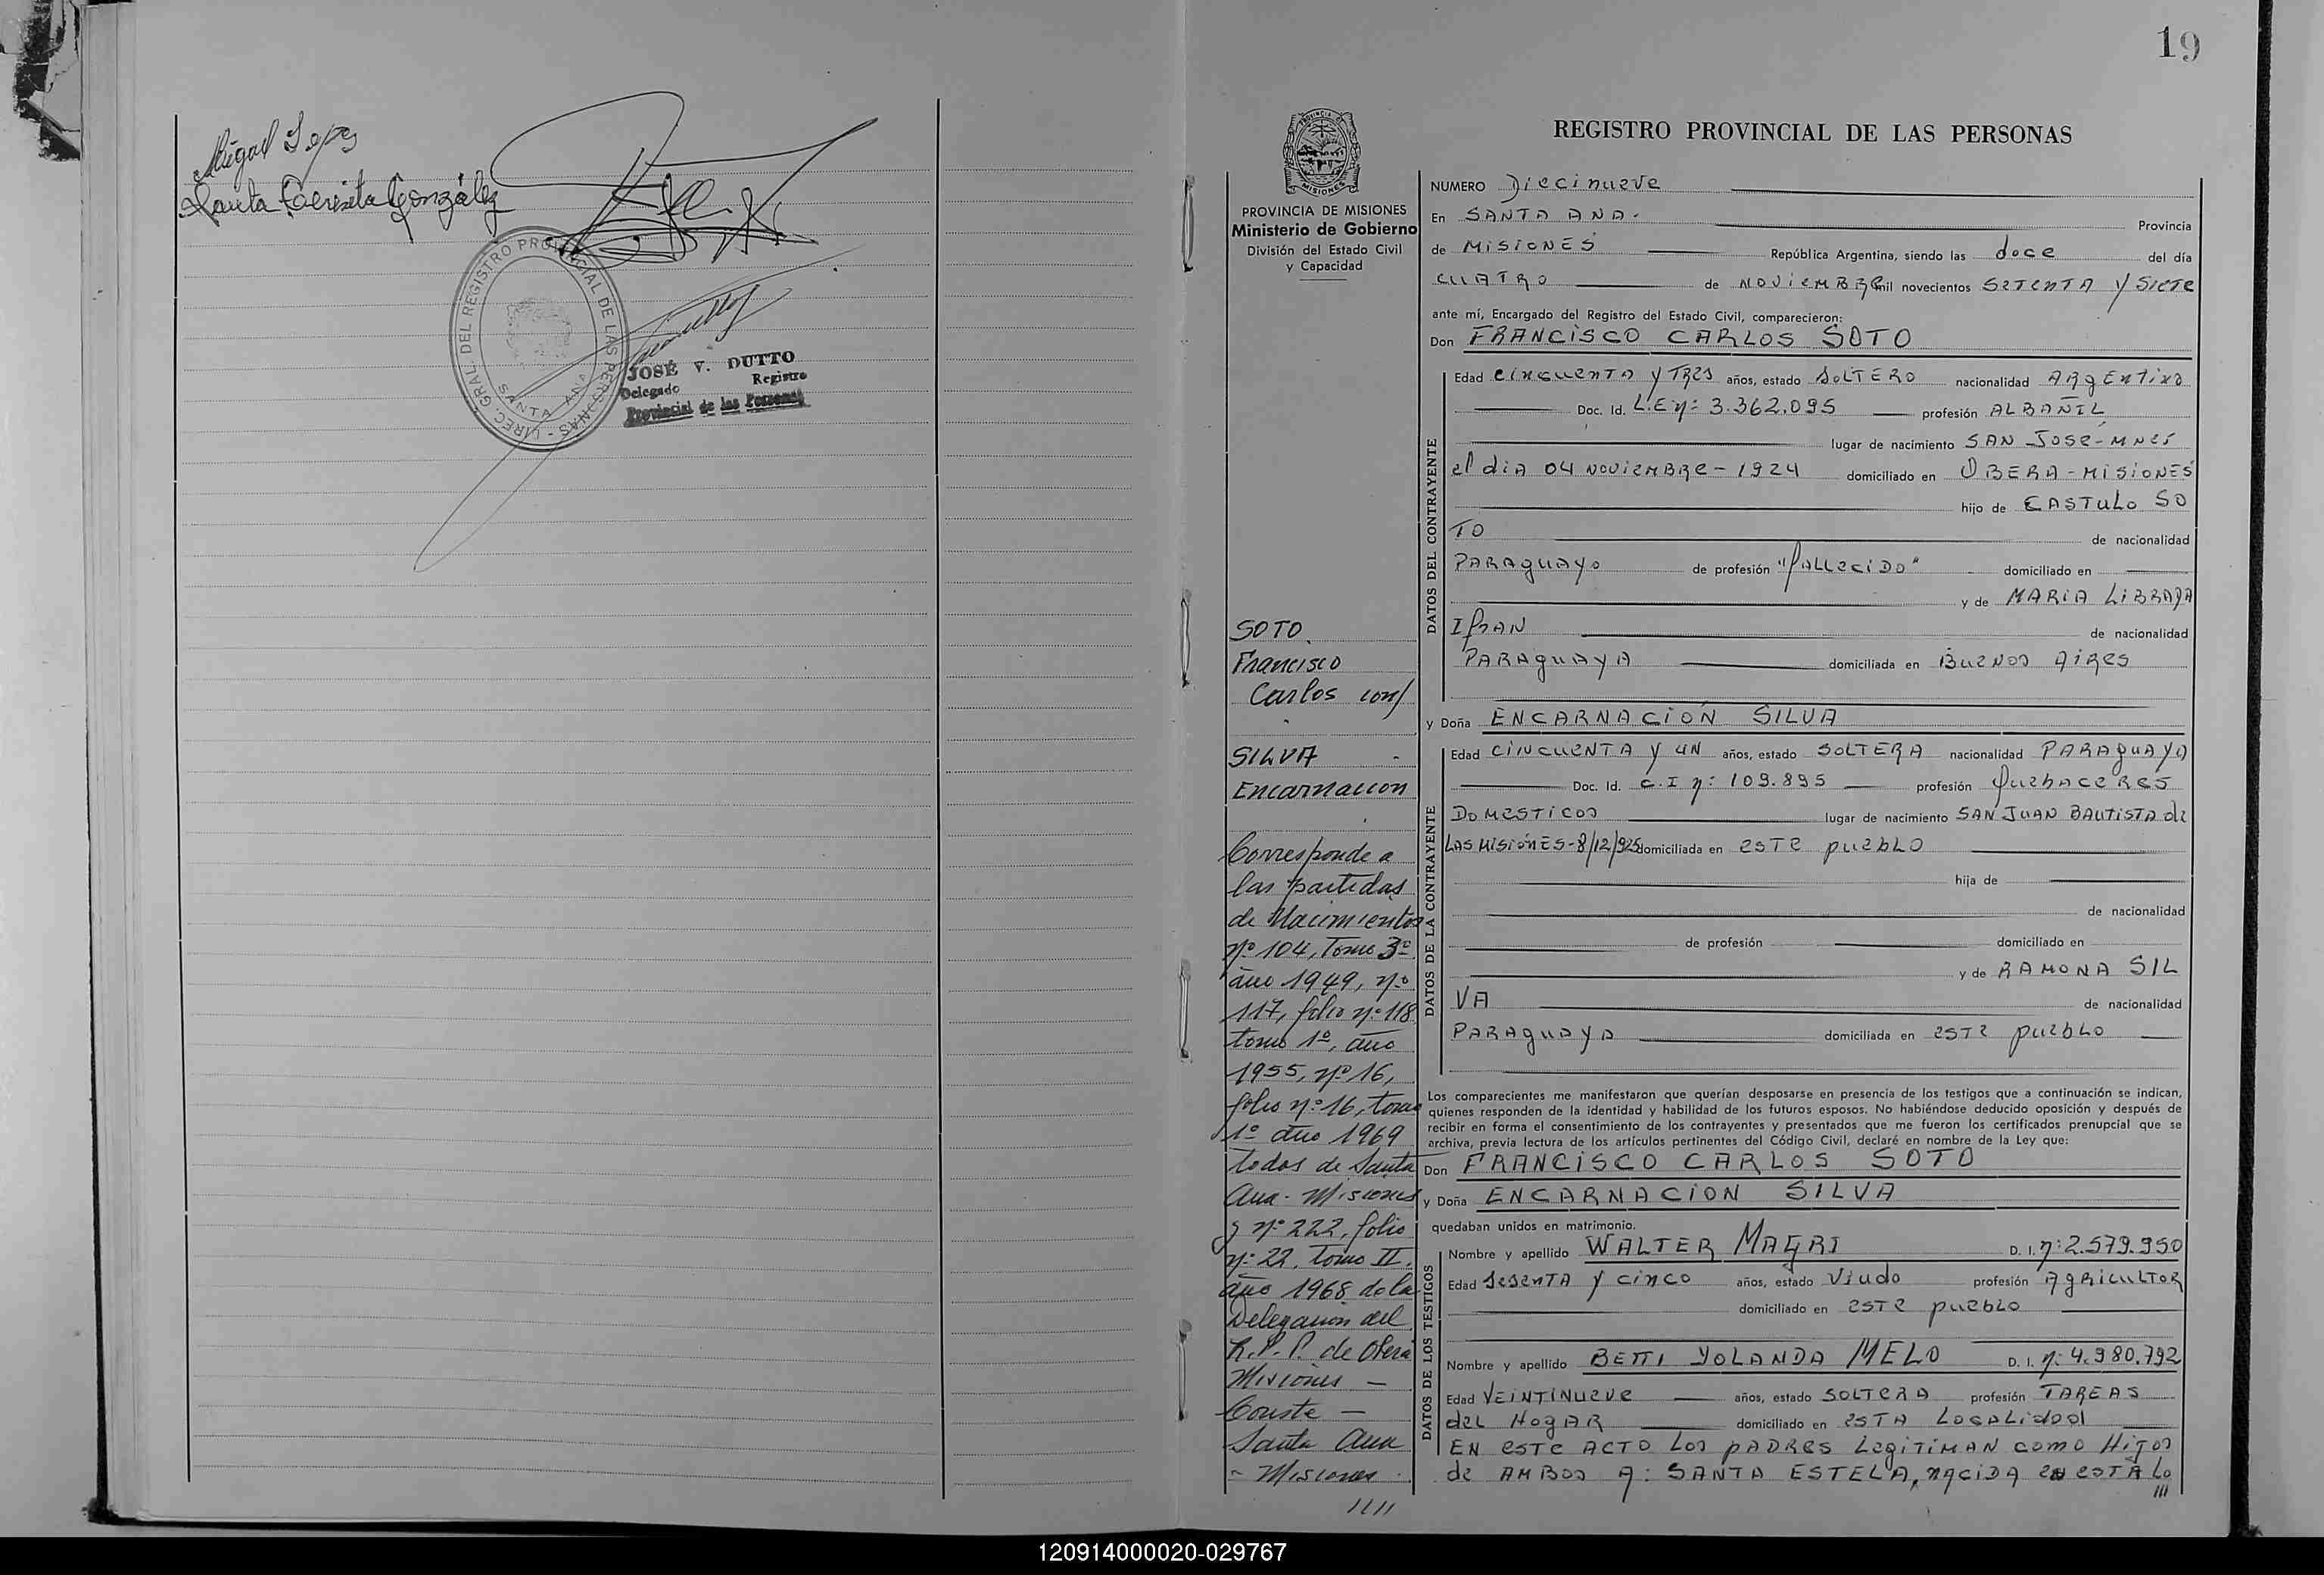 Miguel Lopez
Santa González
DIREC. GRAL. DEL REGISTRO PROVINCIAL DE LAS PERSONAS -
SANTA ANA
JOSÉ V. DUTTO
Delegado Registro
Provincial de las Personas
19
PROVINCIA DE MISIONES
Ministerio de Gobierno
División del Estado Civil
y Capacidad
SOTO
Francisco
Carlos con/
SILVA
Encarnacion
Corresponde a
las partidas
de Nacimientos
nº 104, Tomo 3º
año 1949, nº
117, folio nº 118
tomo 1º, año
1955, nº 16,
folio nº 16, tomo
1º año 1969
todos de Santa
Ana - Misiones
y nº 222, folio
nº 22, Tomo II,
año 1968 de la
Delegación del
R.P.P. de Oberá
Misiones —
Conste —
Santa Ana
- Misiones
////
REGISTRO PROVINCIAL DE LAS PERSONAS
NUMERO Diecinueve
En SANTA ANA. Provincia
de MISIONES República Argentina, siendo las doce del día
CUATRO de NOVIEMBRE mil novecientos SETENTA Y SIETE
ante mí, Encargado del Registro del Estado Civil, comparecieron:
Don FRANCISCO CARLOS SOTO
DATOS DEL CONTRAYENTE
Edad CINCUENTA y TRES años, estado SOLTERO nacionalidad ARGENTINO
Doc. Id. L.E nº 3.362.095 profesión ALBAÑIL
lugar de nacimiento SAN JOSE-MNES
el dia 04 NOVIEMBRE - 1924 domiciliado en OBERA - MISIONES
hijo de CASTULO SO
TO de nacionalidad
PARAGUAYO de profesión "FALLECIDO" domiciliado en
y de MARIA LIBRADA
IFRAN de nacionalidad
PARAGUAYA domiciliada en BUENOS AIRES
y Doña ENCARNACIÓN SILVA
DATOS DE LA CONTRAYENTE
Edad CINCUENTA y UN años, estado SOLTERA nacionalidad PARAGUAYA
Doc. Id. C.I nº 109.895 profesión QUEHACERES
DOMESTICOS lugar de nacimiento SAN JUAN BAUTISTA de
LAS MISIONES - 8/12/925 domiciliada en ESTE PUEBLO
hija de
de nacionalidad
de profesión domiciliado en
y de RAMONA SIL
VA de nacionalidad
PARAGUAYA domiciliada en ESTE PUEBLO
Los comparecientes me manifestaron que querían desposarse en presencia de los testigos que a continuación se indican,
quienes responden de la identidad y habilidad de los futuros esposos. No habiéndose deducido oposición y después de
recibir en forma el consentimiento de los contrayentes y presentados que me fueron los certificados prenupcial que se
archiva, previa lectura de los artículos pertinentes del Código Civil, declaré en nombre de la Ley que:
Don FRANCISCO CARLOS SOTO
y Doña ENCARNACION SILVA
quedaban unidos en matrimonio.
DATOS DE LOS TESTIGOS
Nombre y apellido WALTER MAGRI D. I. nº 2.579.950
Edad SESENTA Y CINCO años, estado VIUDO profesión AGRICULTOR
domiciliado en ESTE PUEBLO
Nombre y apellido BETTI YOLANDA MELO D. I. nº 4.980.792
Edad VEINTINUEVE años, estado SOLTERA profesión TAREAS
del HOGAR domiciliado en ESTA LOCALIDAD
EN ESTE ACTO LOS PADRES LEGITIMAN COMO HIJOS
de AMBOS A: SANTA ESTELA, NACIDA EN ESTA LO
///
120914000020-029767